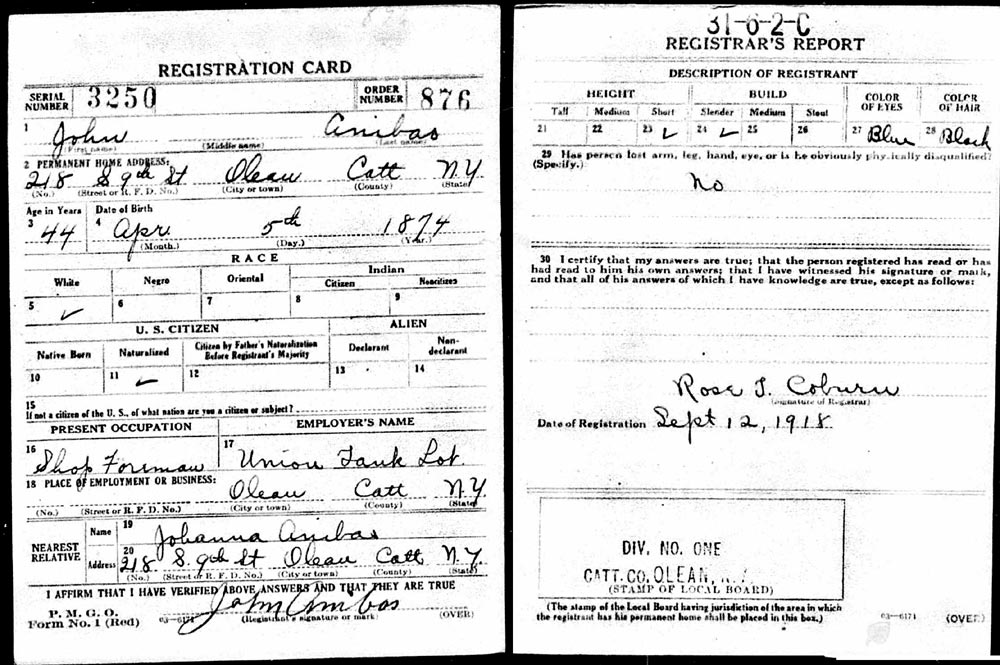 REGISTRATION CARD
SERIAL NUMBER 3250 ORDER NUMBER 876
1 John Anibas
(First name) (Middle name) (Last name)
2 PERMANENT HOME ADDRESS:
218 S 9th St Olean Catt N.Y.
(No.) (Street or R. F. D. No.) (City or town) (County) (State)
Age in Years Date of Birth
3 44 4 Apr. 5th 1874
(Month.) (Day.) (Year.)
RACE
White Negro Oriental Indian
Citizen Noncitizen
5 ✓ 6 7 8 9
U. S. CITIZEN ALIEN
Native Born Naturalized Citizen by Father's Naturalization Before Registrant's Majority Declarant Non-declarant
10 11 ✓ 12 13 14
15
If not a citizen of the U. S., of what nation are you a citizen or subject?
PRESENT OCCUPATION EMPLOYER'S NAME
16 Shop Foreman 17 Union Tank
18 PLACE OF EMPLOYMENT OR BUSINESS:
Olean Catt N.Y.
(No.) (Street or R. F. D. No.) (City or town) (County) (State)
NEAREST RELATIVE Name 19 Johanna Anibas
Address 20 218 S. 9th St Olean Catt N.Y.
(No.) (Street or R. F. D. No.) (City or town) (County) (State)
I AFFIRM THAT I HAVE VERIFIED ABOVE ANSWERS AND THAT THEY ARE TRUE
P. M. G. O.
Form No. 1 (Red) 03—6171 John Anibas
(Registrant's signature or mark) (OVER)
31-6-2-C
REGISTRAR'S REPORT
DESCRIPTION OF REGISTRANT
HEIGHT BUILD COLOR OF EYES COLOR OF HAIR
Tall Medium Short Slender Medium Stout
21 22 23 ✓ 24 ✓ 25 26 27 Blue 28 Black
29 Has person lost arm, leg, hand, eye, or is he obviously physically disqualified?
(Specify.)
No
30 I certify that my answers are true; that the person registered has read or has
had read to him his own answers; that I have witnessed his signature or mark,
and that all of his answers of which I have knowledge are true, except as follows:
Rose T. Coburn
(Signature of Registrar)
Date of Registration Sept 12, 1918
DIV. NO. ONE
CATT. CO. OLEAN, N.Y.
(STAMP OF LOCAL BOARD)
(The stamp of the Local Board having jurisdiction of the area in which
the registrant has his permanent home shall be placed in this box.)
03—6171 (OVER)